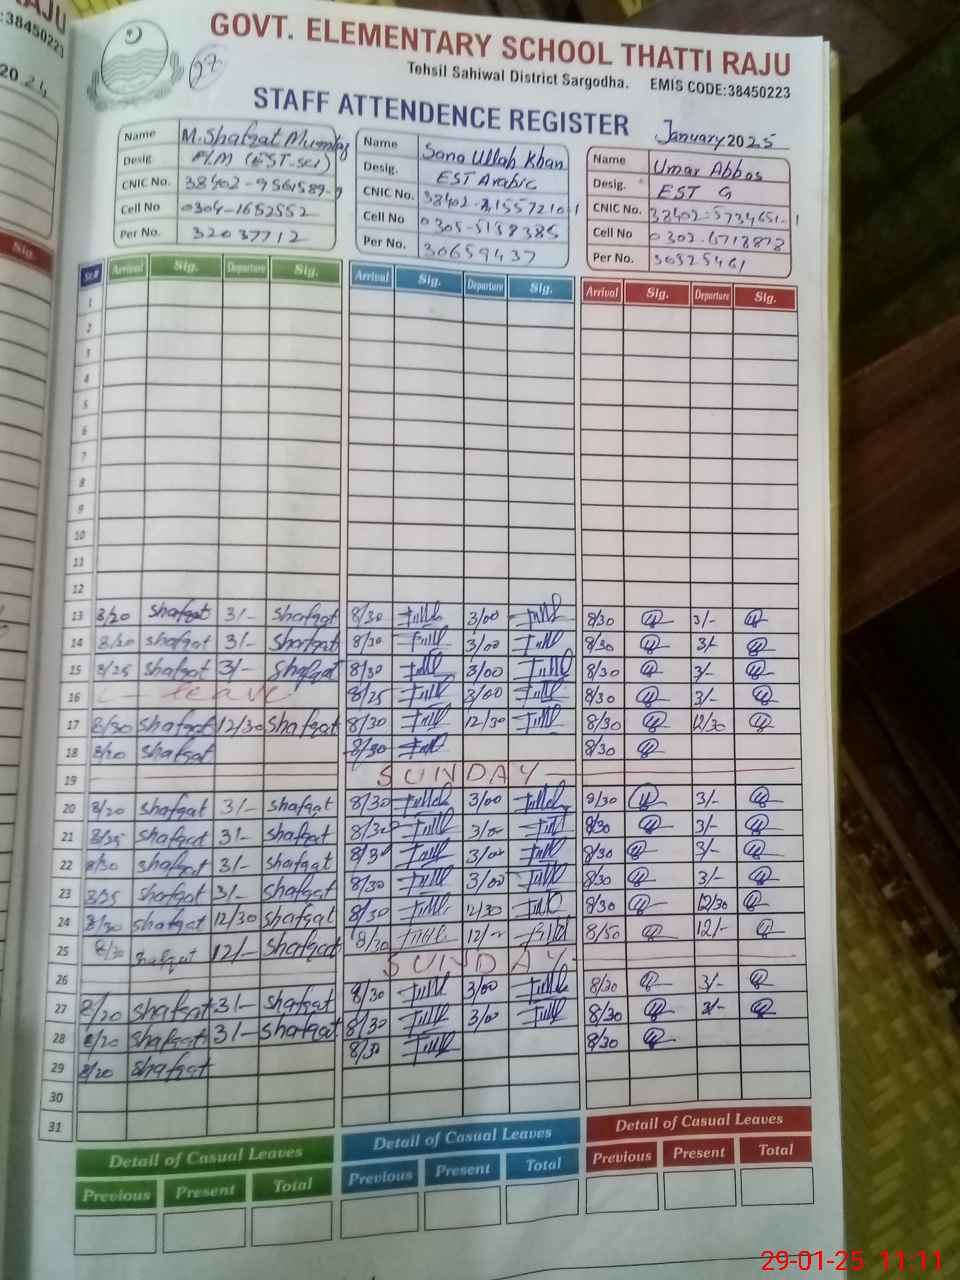 RAJU
:38450223
2024
Sig.
GOVT. ELEMENTARY SCHOOL THATTI RAJU
Tehsil Sahiwal District Sargodha. EMIS CODE:38450223
27
STAFF ATTENDENCE REGISTER January 2025
Name M. Shafqat Mumtaz
Desig.
CNIC No.
Cell No 0304-1652552
Per No. 32037712
Name Sana Ullah Khan
Desig. EST Arabic
CNIC No.
Cell No
Per No. 30659437
Name Umar Abbas
Desig. EST G
CNIC No. 38402-5734651-1
Cell No
Per No.
Sr.# Arrival Sig. Departure Sig. Arrival Sig. Departure Sig. Arrival Sig. Departure Sig.
1
2
3
4
5
6
7
8
9
10
11
12
13 8/20 Shafqat 3/- Shafqat 8/30 3/00 8/30 3/-
14 8/20 Shafqat 3/- Shafqat 8/30 3/00 8/30 3/-
15 8/25 Shafqat 3/- Shafqat 8/30 3/00 8/30 3/-
16 leave 8/25 3/00 8/30 3/-
17 8/30 Shafqat 12/30 Shafqat 8/30 12/30 8/30 12/30
18 8/20 Shafqat 8/30 8/30
19 SUNDAY
20 8/20 Shafqat 3/- Shafqat 8/30 3/00 8/30 3/-
21 8/25 Shafqat 3/- Shafqat 8/30 3/00 8/30 3/-
22 8/30 Shafqat 3/- Shafqat 8/30 3/00 8/30 3/-
23 8/25 Shafqat 3/- Shafqat 8/30 3/00 8/30 3/-
24 8/30 Shafqat 12/30 Shafqat 8/30 12/30 8/30 12/30
25 8/30 Shafqat 12/- Shafqat 8/30 12/00 12/-
26 SUNDAY
27 8/20 Shafqat 3/- Shafqat 8/30 3/00 8/30 3/-
28 8/20 Shafqat 3/- Shafqat 8/30 3/00 8/30 3/-
29 8/20 Shafqat 8/30 8/30
30
31
Detail of Casual Leaves Detail of Casual Leaves Detail of Casual Leaves
Previous Present Total Previous Present Total Previous Present Total
29-01-25 11:11